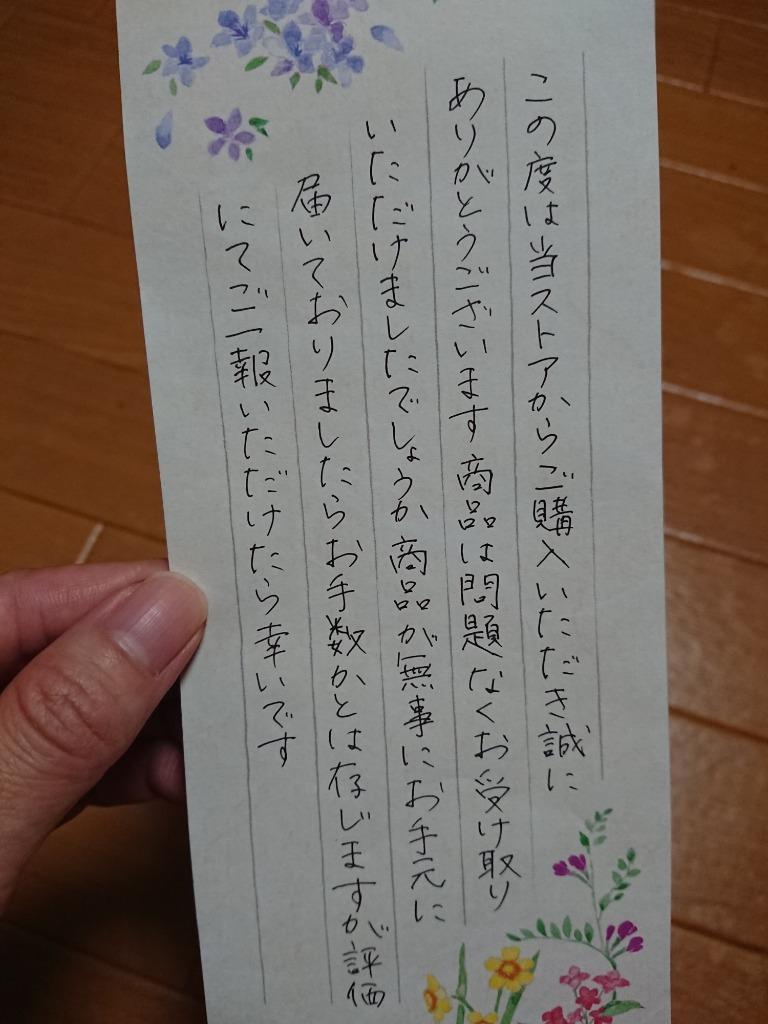 この度は当ストアからご購入いただき誠に
ありがとうございます商品は問題なくお受け取り
いただけましたでしょうか商品が無事にお手元に
届いておりましたらお手数かとは存じますが評価
にてご一報いただけたら幸いです